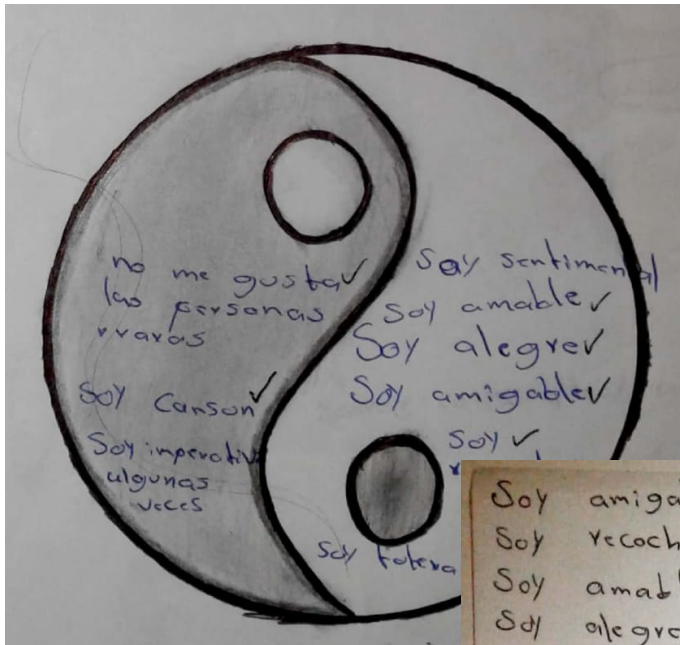 no me gusta✓
las personas
rraras
Soy Canson✓
Soy imperativ
algunas
veces
Soy sentimental
Soy amable✓
Soy alegre✓
Soy amigable✓
Soy ✓
Soy
Soy amiga
Soy recoch
Soy amab
Soy alegre